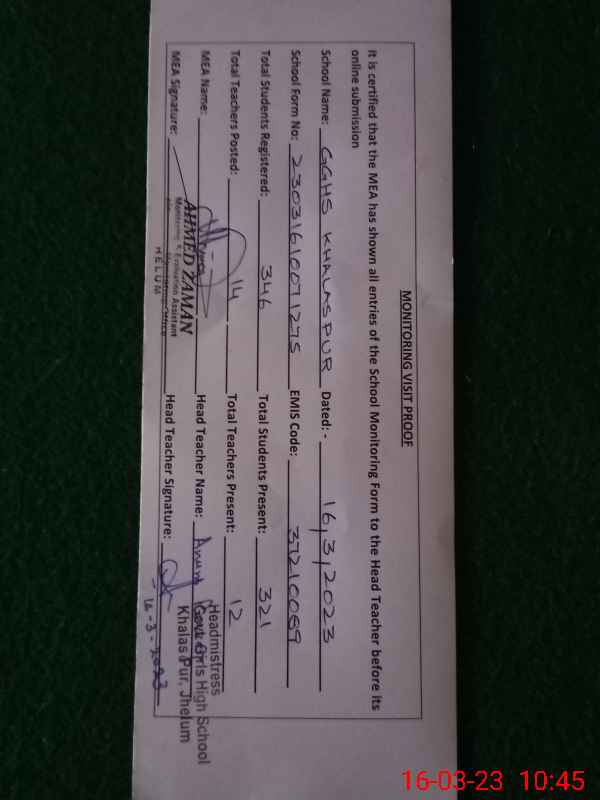 MONITORING VISIT PROOF
It is certified that the MEA has shown all entries of the School Monitoring Form to the Head Teacher before its
online submission
School Name: GGHS KHALASPUR Dated: - 16,3,2023
School Form No: 23031610071275 EMIS Code: 37210069
Total Students Registered: 346 Total Students Present: 321
Total Teachers Posted: 14 Total Teachers Present: 12
MEA Name: Head Teacher Name: Anum
MEA Signature: Head Teacher Signature:
AHMED ZAMAN
Monitoring & Evaluation Assistant
HELUM
Headmistress
Govt Girls High School
Khalas Pur, Jhelum
16-3-2023
16-03-23 10:45